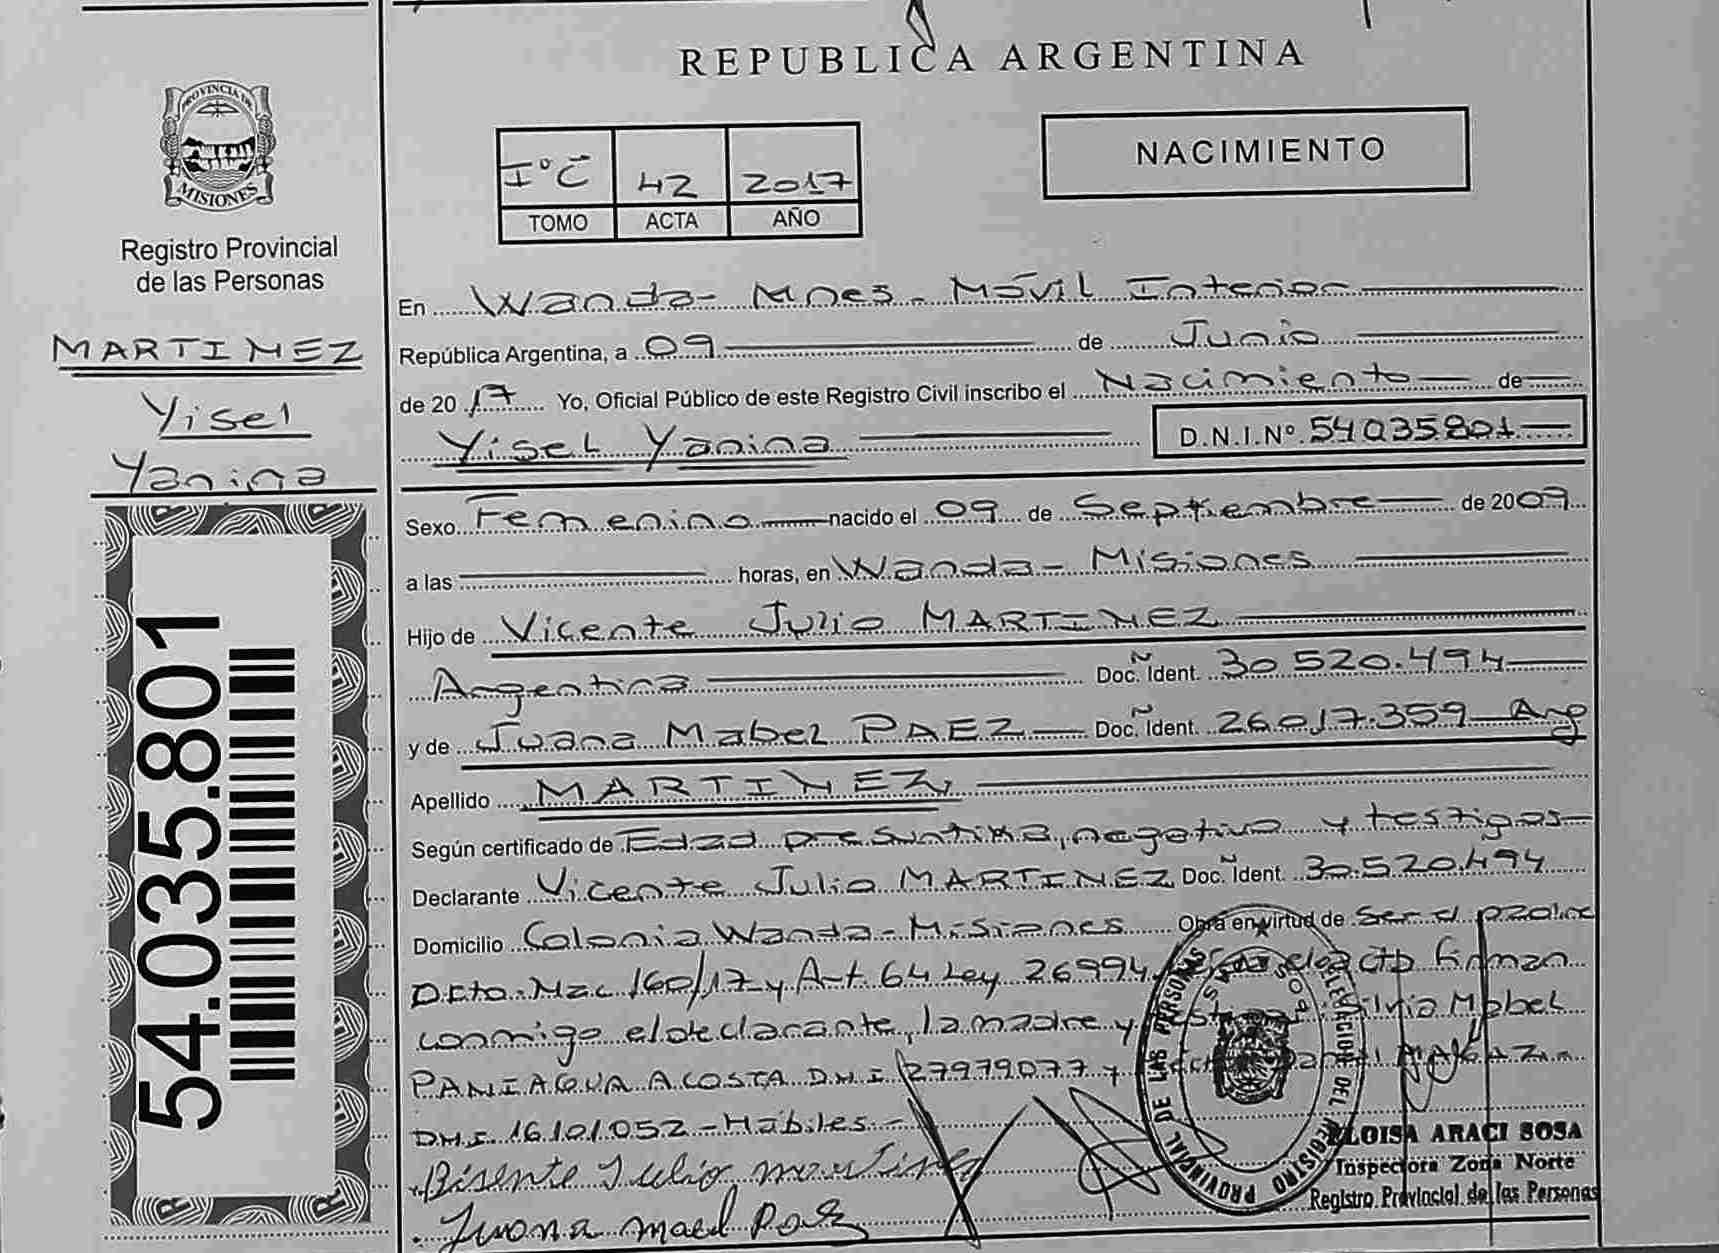 REPUBLICA ARGENTINA
PROVINCIA DE
MISIONES
Registro Provincial
de las Personas
MARTINEZ
Yisel
Yanina
54.035.801
I° C 42 2017
TOMO ACTA AÑO
NACIMIENTO
En Wanda - Mnes - Móvil Interior
República Argentina, a 09 de Junio
de 2017 Yo, Oficial Público de este Registro Civil inscribo el Nacimiento de
Yisel Yanina D.N.I.Nº. 54035801
Sexo Femenino nacido el 09 de Septiembre de 2009
a las horas, en Wanda - Misiones
Hijo de Vicente Julio MARTINEZ
Argentina Doc. Ident. 30.520.494
y de Juana Mabel PAEZ Doc. Ident. 26.017.359 Arg
Apellido MARTINEZ
Según certificado de Edad presuntiva, negativo y testigos
Declarante Vicente Julio MARTINEZ Doc. Ident. 30.520.494
Domicilio Colonia Wanda - Misiones Obra en virtud de Ser el padre
Dcto. Nac. 160/17 y Art. 64 Ley 26994 firman
conmigo el declarante, la madre y Silvia Mabel
PANIAGUA ACOSTA D.N.I. 27979077 y
D.N.I. 16.101.052 - Hábiles.-
Bisente Julio martinez
Juana
PROVINCIAL DE LAS PERSONAS
DEL REGISTRO
ELOISA ARACI SOSA
Inspectora Zona Norte
Registro Provincial de las Personas